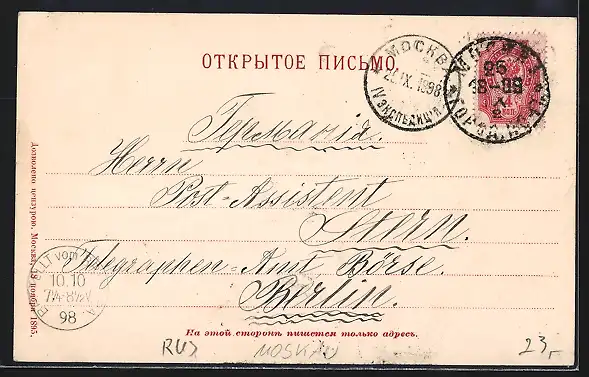 ОТКРЫТОЕ ПИСЬМО.
МОСКВА
IX. 1898
IV ЭКСПЕДИЦІЯ
25
98
Германія.
Herrn
Post-Assistent
Stern.
Telegraphen-Amt Börse.
Berlin.
BESTELLT vom
10.10
98
Дозволено цензурою, Москва, 18 ноября 1895.
На этой сторонѣ пишется только адресъ.
RUS
MOSKAU
23,-